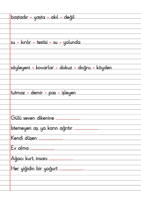 baştadır - yaşta - akıl - değil
su - kırılır - testisi - su - yolunda
söyleyeni - kovarlar - dokuz - doğru - köyden
tutmaz - demir - pas - işleyen
Gülü seven dikenine ....................
İstemeyen aş ya karın ağrıtır ....................
Kendi düşen ....................
Ev alma ....................
Ağacı kurt, insanı ....................
Her yiğidin bir yoğurt ....................